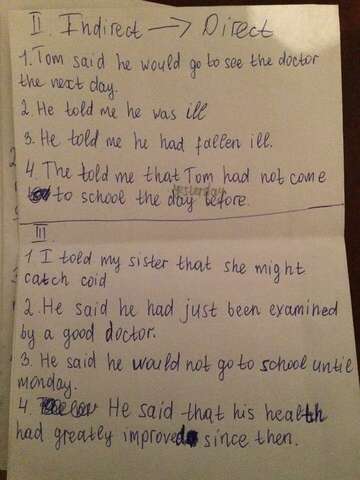 II. Indirect → Direct
1. Tom said he would go to see the doctor
the next day.
2. He told me he was ill
3. He told me he had fallen ill.
4. The told me that Tom had not come
to school the day before.
yesterday
III.
1. I told my sister that she might
catch coid
2. He said he had just been examined
by a good doctor.
3. He said he would not go to school until
monday.
4. He said that his health
had greatly improved since then.